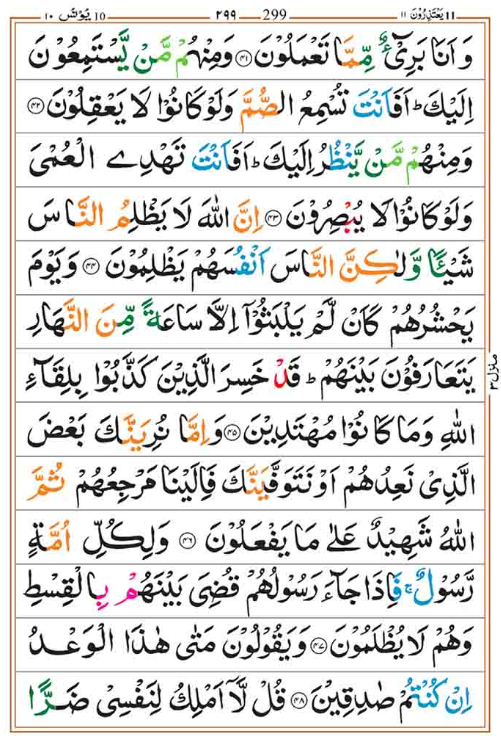 يَعْتَذِرُوْنَ ١١ 299 ٢٩٩ يُوْنُس ١٠
وَ اَنَا بَرِیْٓءٌ مِّمَّا تَعْمَلُوْنَ ﴿۴۱﴾ وَمِنْهُمْ مَّنْ یَّسْتَمِعُوْنَ
اِلَیْكَ ؕ اَفَاَنْتَ تُسْمِعُ الصُّمَّ وَلَوْ كَانُوْا لَا یَعْقِلُوْنَ ﴿۴۲﴾
وَمِنْهُمْ مَّنْ یَّنْظُرُ اِلَیْكَ ؕ اَفَاَنْتَ تَهْدِی الْعُمْیَ
وَلَوْ كَانُوْا لَا یُبْصِرُوْنَ ﴿۴۳﴾ اِنَّ اللّٰهَ لَا یَظْلِمُ النَّاسَ
شَیْـًٔا وَّلٰكِنَّ النَّاسَ اَنْفُسَهُمْ یَظْلِمُوْنَ ﴿۴۴﴾ وَیَوْمَ
یَحْشُرُهُمْ كَاَنْ لَّمْ یَلْبَثُوْۤا اِلَّا سَاعَةً مِّنَ النَّهَارِ
یَتَعَارَفُوْنَ بَیْنَهُمْ ؕ قَدْ خَسِرَ الَّذِیْنَ كَذَّبُوْا بِلِقَآءِ
اللّٰهِ وَمَا كَانُوْا مُهْتَدِیْنَ ﴿۴۵﴾ وَاِمَّا نُرِیَنَّكَ بَعْضَ
الَّذِیْ نَعِدُهُمْ اَوْ نَتَوَفَّیَنَّكَ فَاِلَیْنَا مَرْجِعُهُمْ ثُمَّ
اللّٰهُ شَهِیْدٌ عَلٰی مَا یَفْعَلُوْنَ ﴿۴۶﴾ وَلِكُلِّ اُمَّةٍ
رَّسُوْلٌ ۚ فَاِذَا جَآءَ رَسُوْلُهُمْ قُضِیَ بَیْنَهُمْ بِالْقِسْطِ
وَهُمْ لَا یُظْلَمُوْنَ ﴿۴۷﴾ وَیَقُوْلُوْنَ مَتٰی هٰذَا الْوَعْدُ
اِنْ كُنْتُمْ صٰدِقِیْنَ ﴿۴۸﴾ قُلْ لَّاۤ اَمْلِكُ لِنَفْسِیْ ضَرًّا
منزل ۳